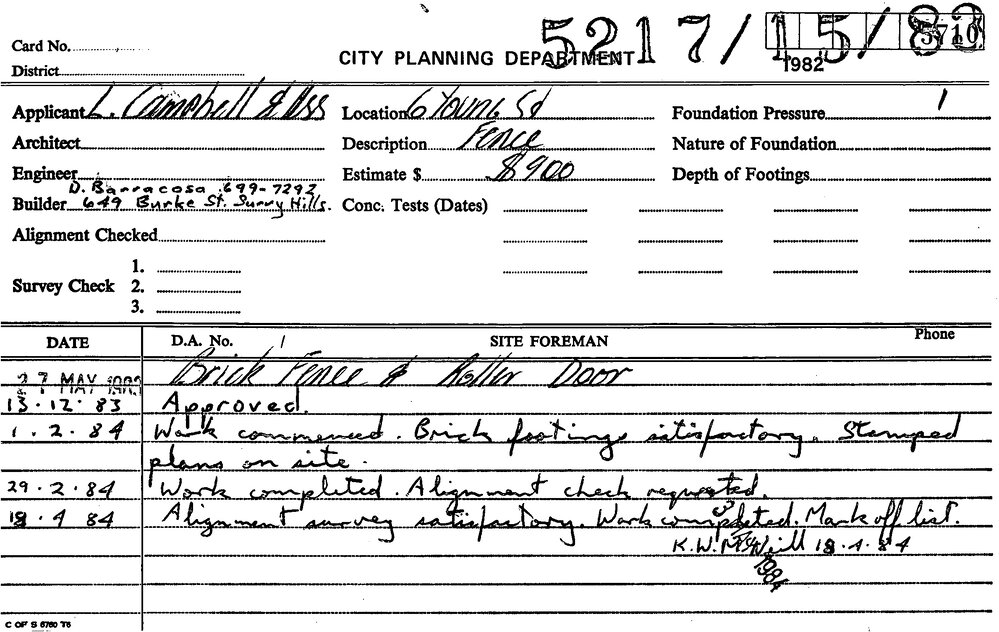 5217/15/83
5710
1982
Card No.
CITY PLANNING DEPARTMENT
District
Applicant L. Campbell & Ass Location 6 Young St Foundation Pressure
Architect Description Fence Nature of Foundation
Engineer Estimate $ $900 Depth of Footings
D. Barracosa 699-7292
Builder 649 Burke St. Surry Hills. Conc. Tests (Dates)
Alignment Checked
1.
Survey Check 2.
3.
DATE D.A. No. SITE FOREMAN Phone
27 MAY 1983 Brick Fence & Roller Door
13.12.83 Approved.
1.2.84 Work commenced. Brick footings satisfactory. Stamped
plans on site.
29.2.84 Work completed. Alignment check requested.
18.4 84 Alignment survey satisfactory. Work completed. Mark off list.
K.W. McNeill 18.4.84
1984
C OF S 6760 T6